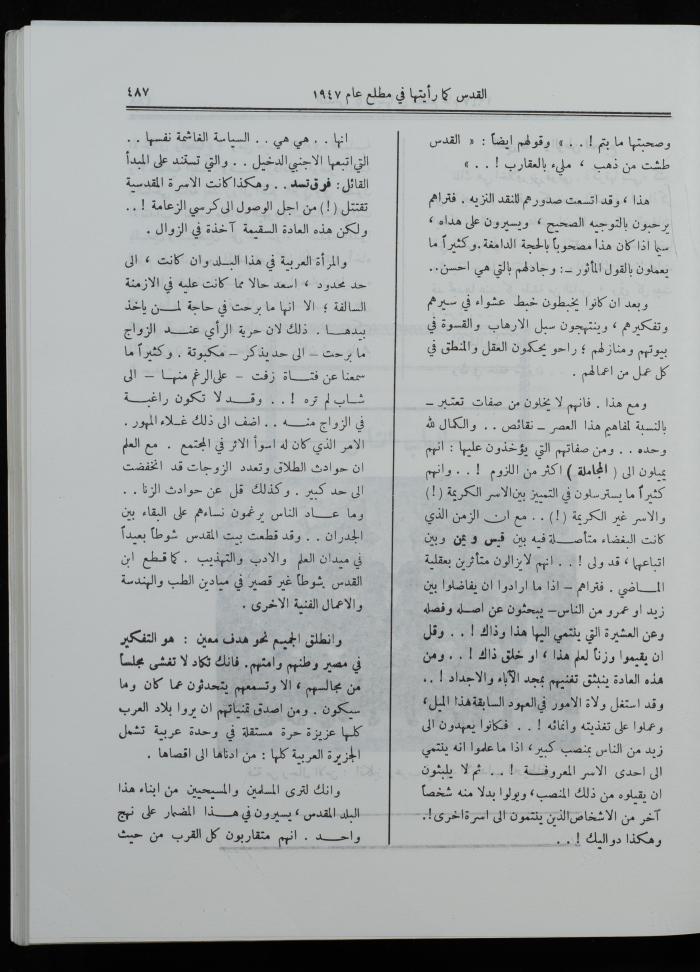 القدس كما رأيتها في مطلع عام ١٩٤٧
٤٨٧
وصحبتها ما يتم ! . . » وقولهم ايضاً : « القدس
طشت من ذهب ، مليء بالعقارب ! . . »
هذا ، وقد اتسعت صدورهم للنقد النزيه . فتراهم
يرحبون بالتوجيه الصحيح ، ويسيرون على هداه ،
سيما اذا كان هذا مصحوباً بالحجة الدامغة . وكثيراً ما
يعملون بالقول المأثور ــ : وجادلهم بالتي هي احسن . .
وبعد ان كانوا يخبطون خبط عشواء في سيرهم
وتفكيرهم ، وينتهجون سبل الارهاب والقسوة في
بيوتهم ومنازلهم ؛ راحو يحكمون العقل والمنطق في
كل عمل من اعمالهم .
ومع هذا . فانهم لا يخلون من صفات تعتبر ــ
بالنسبة لمفاهيم هذا العصر ــ نقائص . . والكمال لله
وحده . . ومن صفاتهم التي يؤخذون عليها : انهم
يميلون الى ( المجاملة ) اكثر من اللزوم ! . . وانهم
كثيراً ما يسترسلون في التمييز بين الاسر الكريمة (!)
والاسر غير الكريمة (!) . . مع ان الزمن الذي
كانت البغضاء متأصلة فيه بين قيس و يمن وبين
اتباعها ، قد ولى ! . . انهم لا يزالون متأثرين بعقلية
الماضي . فتراهم ــ اذا ما ارادوا ان يفاضلوا بين
زيد او عمرو من الناس ــ يبحثون عن اصله وفصله
وعن العشيرة التي ينتمي اليها هذا وذاك ! . . وقل
ان يقيموا وزناً لعلم هذا ، او خلق ذاك ! . . ومن
هذه العادة ينبثق تغنيهم بمجد الآباء والاجداد ! . .
وقد استغل ولاة الامور في العهود السابقة هذا الميل ،
وعملوا على تغذيته وانمائه ! . . فكانوا يعهدون الى
زيد من الناس بمنصب كبير ، اذا ما علموا انه ينتمي
الى احدى الاسر المعروفة ! . . ثم لا يلبثون
ان يقيلوه من ذلك المنصب ، ويولوا بدلا منه شخصاً
آخر من الاشخاص الذين ينتمون الى اسرة اخرى ! .
وهكذا دواليك ! . .
انها . . هي هي . . السياسة الغاشمة نفسها . .
التي اتبعها الاجنبي الدخيل . . والتي تستند على المبدأ
القائل : فرق تسد . . وهكذا كانت الاسرة المقدسية
تقتتل (!) من اجل الوصول الى كرسي الزعامة ! . .
ولكن هذه العادة السقيمة آخذة في الزوال .
والمرأة العربية في هذا البلد وان كانت ، الى
حد محدود ، اسعد حالا مما كانت عليه في الازمنة
السالفة ؛ الا انها ما برحت في حاجة لمن ياخذ
بيدها . ذلك لان حرية الرأي عند الزواج
ما برحت ــ الى حد يذكر ــ مكبوتة . وكثيراً ما
سمعنا عن فتاة زفت ــ على الرغم منها ــ الى
شاب لم تره ! . . وقد لا تكون راغبة
في الزواج منه . . اضف الى ذلك غلاء المهور .
الامر الذي كان له اسوأ الاثر في المجتمع . مع العلم
ان حوادث الطلاق وتعدد الزوجات قد انخفضت
الى حد كبير . وكذلك قل عن حوادث الزنا . .
وما عاد الناس يرغمون نساءهم على البقاء بين
الجدران . . وقد قطعت بيت المقدس شوطاً بعيداً
في ميدان العلم والادب والتهذيب . كما قطع ابن
القدس شوطاً غير قصير في ميادين الطب والهندسة
والاعمال الفنية الاخرى .
وانطلق الجميع نحو هدف معين : هو التفكير
في مصير وطنهم وامتهم . فانك تكاد لا تغشى مجلساً
من مجالسهم ، الا وتسمعهم يتحدثون عما كان وما
سيكون . ومن اصدق تمنياتهم ان يروا بلاد العرب
كلها عزيزة حرة مستقلة في وحدة عربية تشمل
الجزيرة العربية كلها : من ادناها الى اقصاها .
وانك لترى المسلمين والمسيحيين من ابناء هذا
البلد المقدس ، يسيرون في هذا المضمار على نهج
واحد . انهم متقاربون كل القرب من حيث